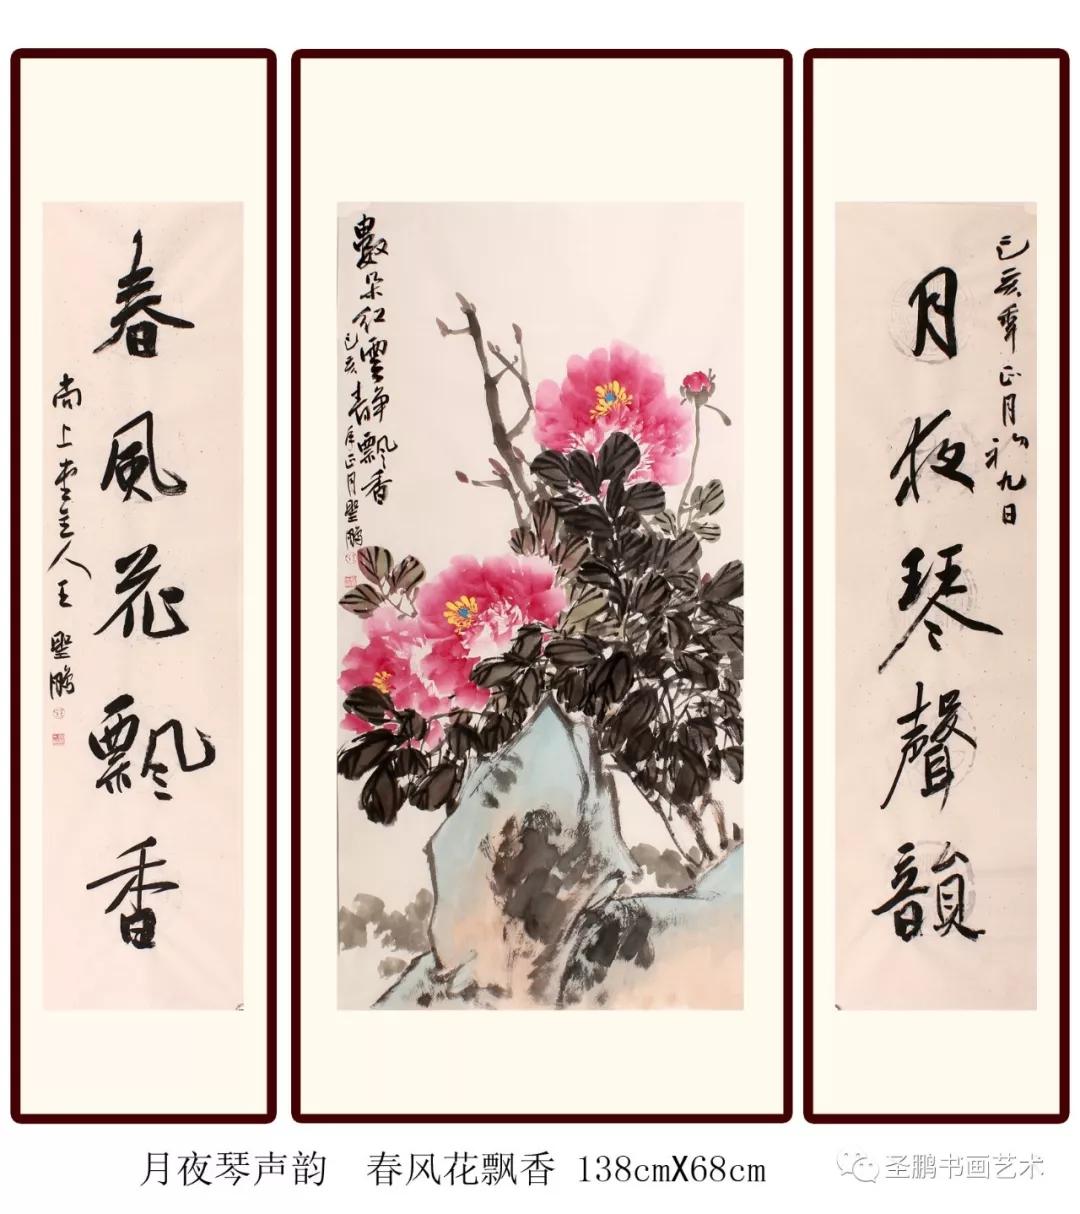 月夜琴聲韻
己亥年正月初九日
數朵红雲静飘香
己亥春月正月聖鵬
春風花飄香
尚上堂主人王聖鵬
月夜琴声韵 春风花飘香 138cmX68cm
圣鹏书画艺术